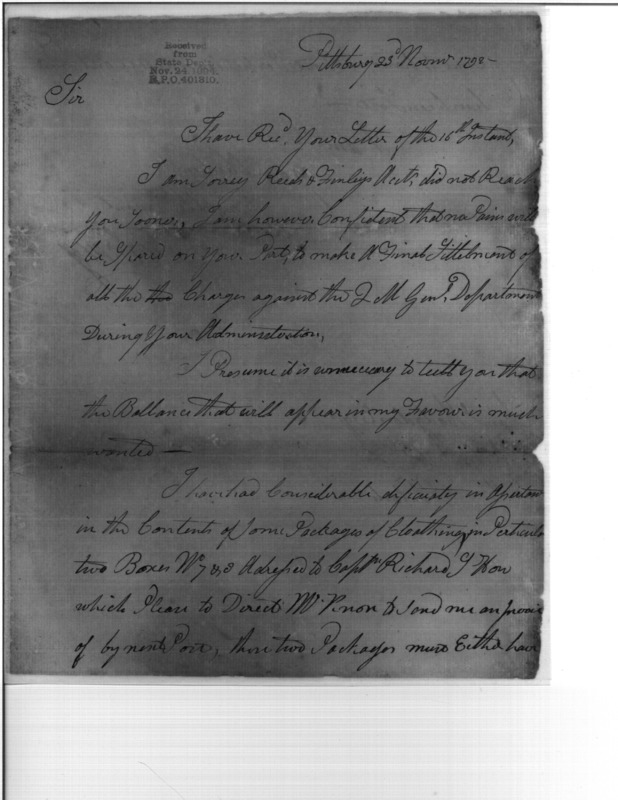 Received
from
State Dept.
Nov. 24, 1904.
R.P.O. 401810.
Pittsburg 23d Novmr 1792 -
Sir
I have Recd. Your Letter of the 16th Instant,
I am Sorrey Reeds & Finleys Acts, did not Reach
you Sooner, I am however Confident that no Pains will
be Spared on Your Part, to make A Final Sittelment of
all the the Charges against the Q M Genl. Department
During Your Administration,
I Presume it is to tell you that
the Ballance that will appear in my Favour is much
wanted —
I have had Considerable in
in the Contents of some Packages of Cloathing, in Perticular
two Boxes No. 7 & 8 Adressed to Captn. Richard S. How
which Please to Direct Mr. to send me an Invoice
of by next Post, these two Packages must Either have